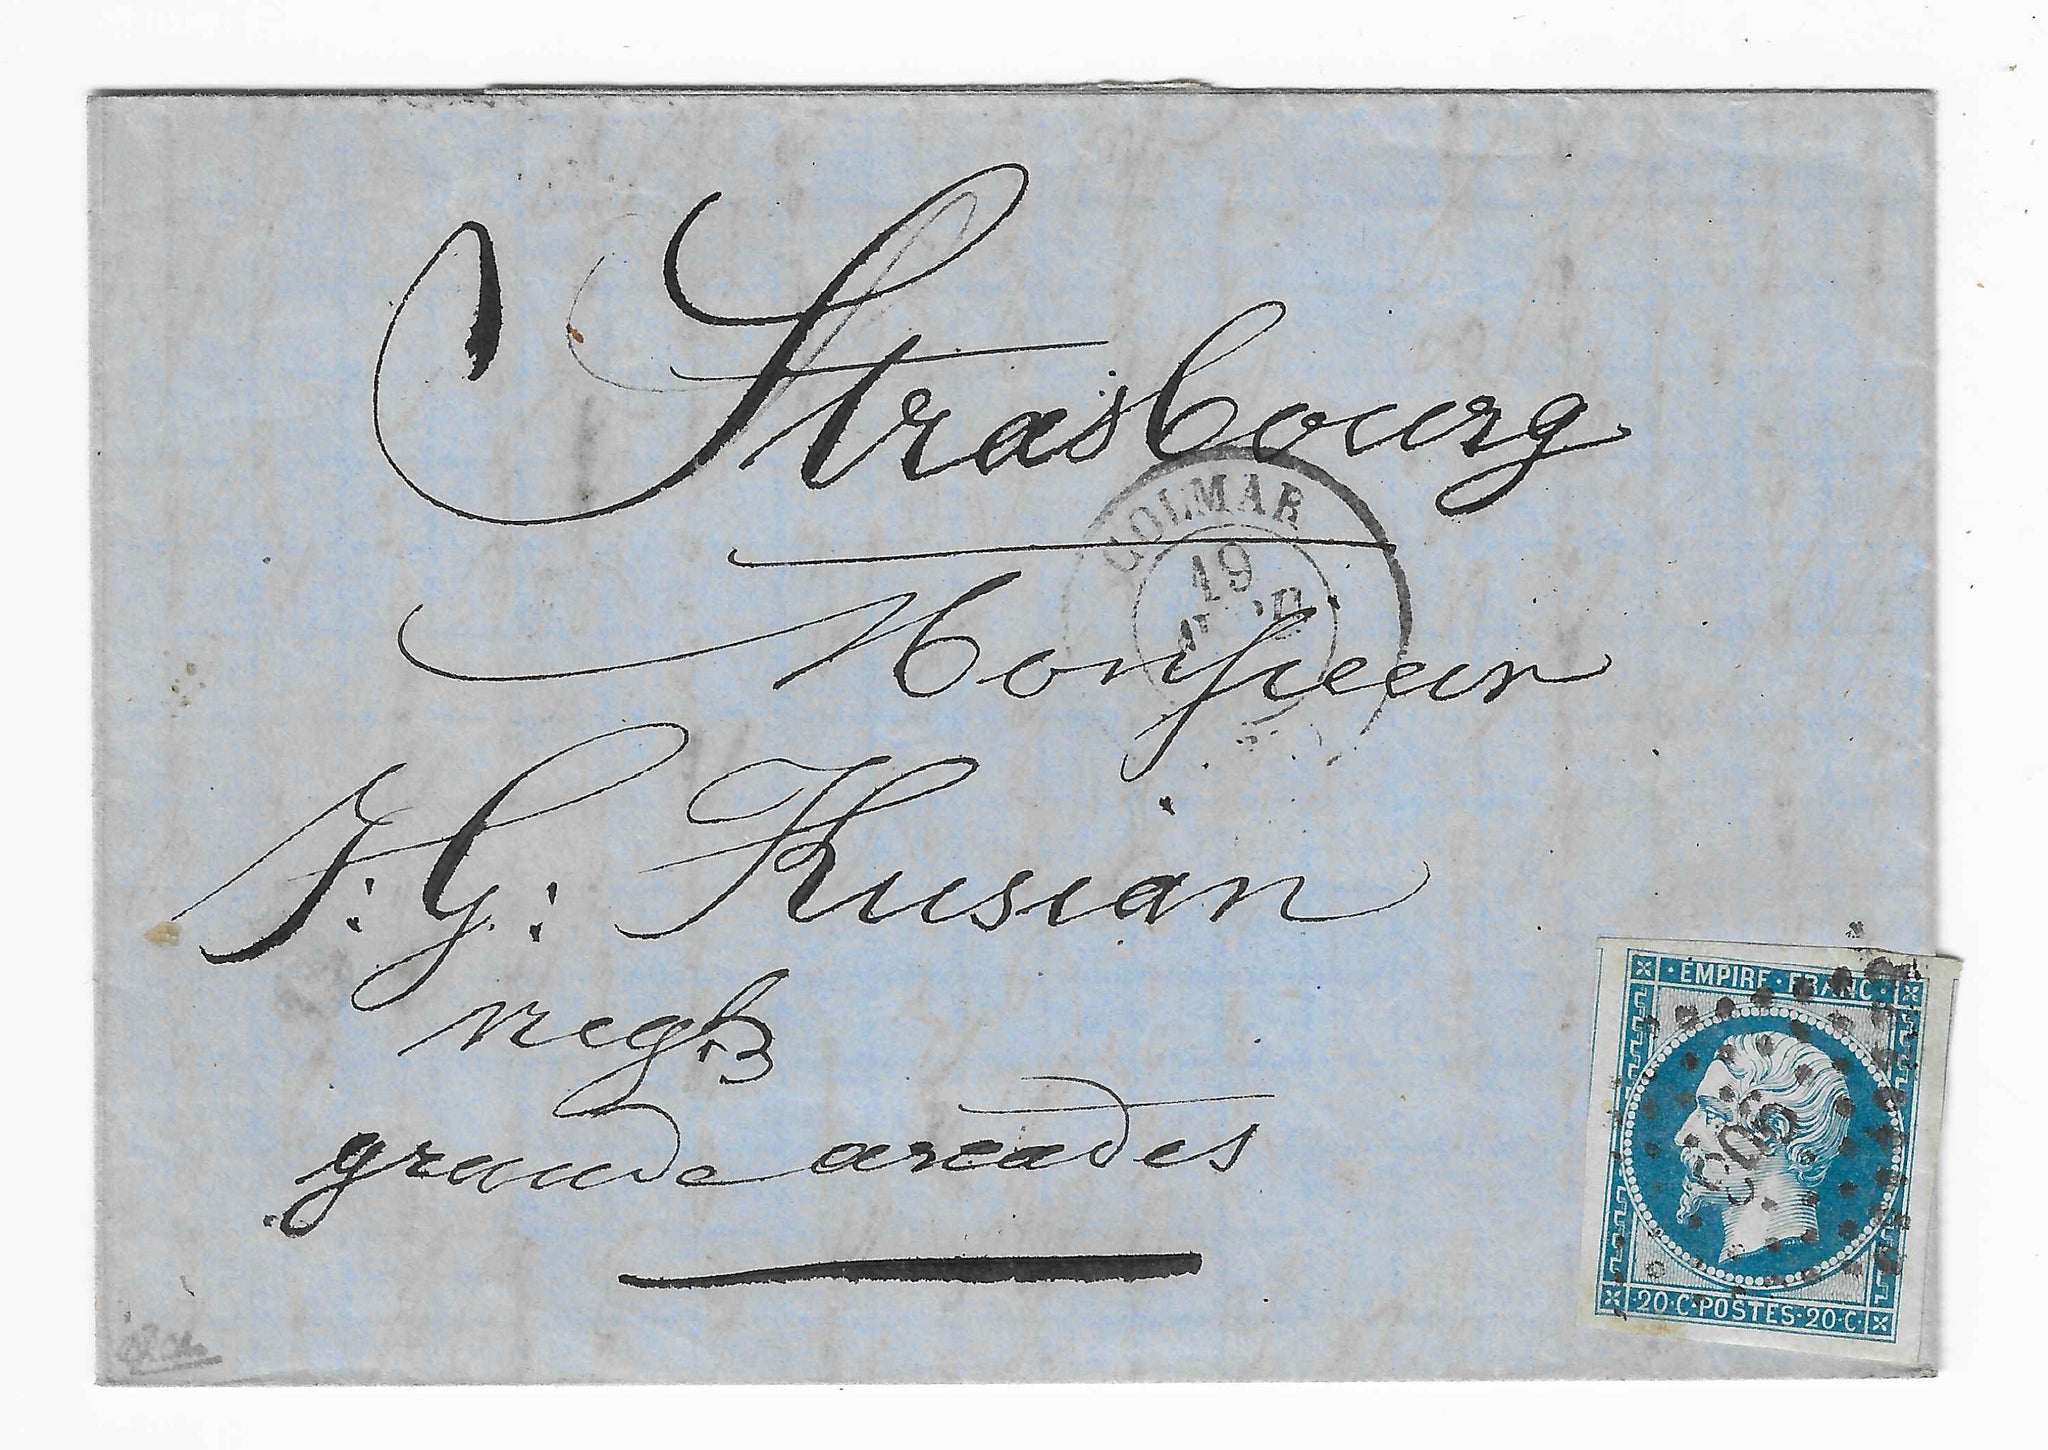 Strasbourg
COLMAR
19
Monsieur
J: G: Kusian
negt
grande arcades
EMPIRE · FRANC ·
·20·C·POSTES·20·C·